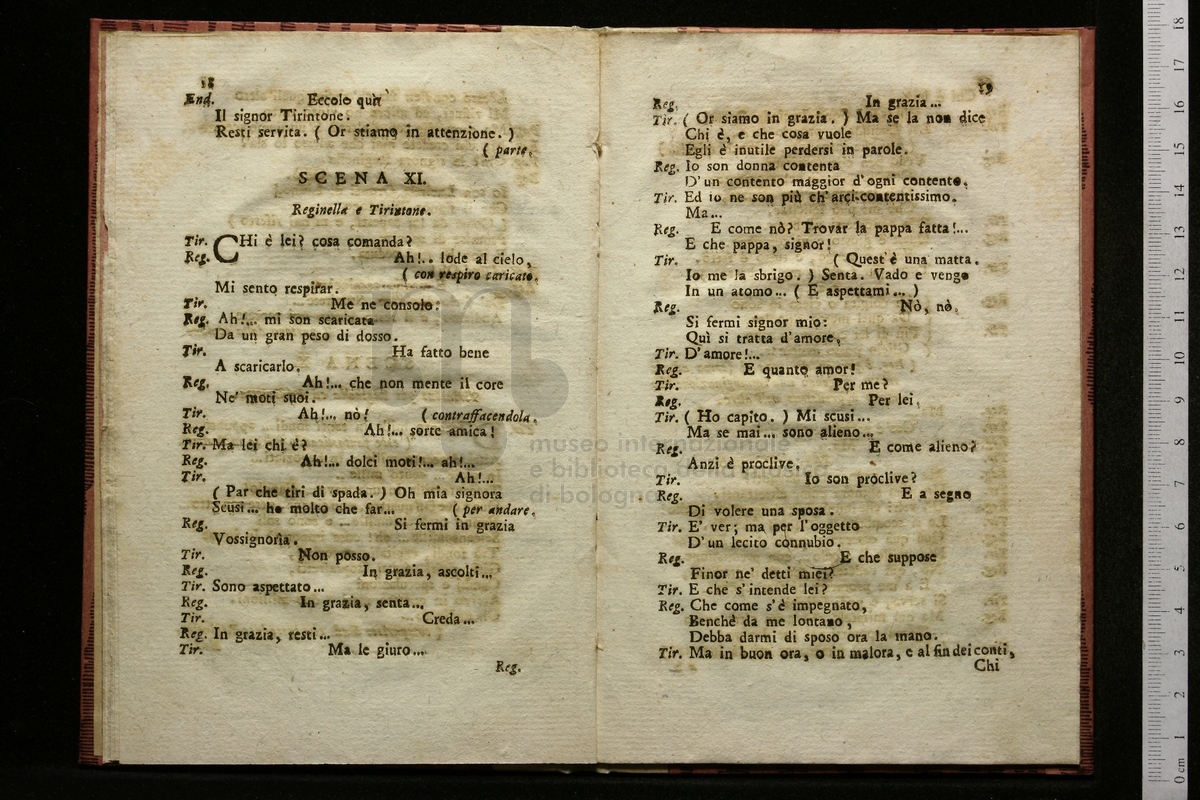 18
End. Eccolo quì
Il signor Tirintone.
Resti servita. ( Or stiamo in attenzione. )
( parte.
SCENA XI.
Reginella e Tirintone.
Tir. CHi è lei? cosa comanda?
Reg. Ah!.. lode al cielo,
( con respiro caricato.
Mi sento respirar.
Tir. Me ne consolo.
Reg. Ah!... mi son scaricata
Da un gran peso di dosso.
Tir. Ha fatto bene
A scaricarlo.
Reg. Ah!... che non mente il core
Ne' moti suoi.
Tir. Ah!... nò! ( contraffacendola.
Reg. Ah!... sorte amica!
Tir. Ma lei chi è?
Reg. Ah!... dolci moti!... ah!...
Tir. Ah!...
( Par che tiri di spada. ) Oh mia signora
Scusi... ho molto che far... ( per andare.
Reg. Si fermi in grazia
Vossignoria.
Tir. Non posso.
Reg. In grazia, ascolti...
Tir. Sono aspettato...
Reg. In grazia, senta...
Tir. Creda...
Reg. In grazia, resti...
Tir. Ma le giuro...
Reg.
19
Reg. In grazia...
Tir. ( Or siamo in grazia. ) Ma se la non dice
Chi è, e che cosa vuole
Egli è inutile perdersi in parole.
Reg. Io son donna contenta
D'un contento maggior d'ogni contento.
Tir. Ed io ne son più ch'arci-contentissimo.
Ma...
Reg. E come nò? Trovar la pappa fatta!...
E che pappa, signor!
Tir. ( Quest'è una matta.
Io me la sbrigo. ) Senta. Vado e vengo
In un atomo... ( E aspettami... )
Reg. Nò, nò,
Si fermi signor mio:
Quì si tratta d'amore,
Tir. D'amore!...
Reg. E quanto amor!
Tir. Per me?
Reg. Per lei,
Tir. ( Ho capito. ) Mi scusi...
Ma se mai... sono alieno...
Reg. E come alieno?
Anzi è proclive.
Tir. Io son proclive?
Reg. E a segno
Di volere una sposa.
Tir. E' ver; ma per l'oggetto
D'un lecito connubio.
Reg. E che suppose
Finor ne' detti miei?
Tir. E che s'intende lei?
Reg. Che come s'è impegnato,
Benchè da me lontano,
Debba darmi di sposo ora la mano.
Tir. Ma in buon ora, o in malora, e al fin dei conti,
Chi
museo internazionale
e biblioteca della musica
di bologna